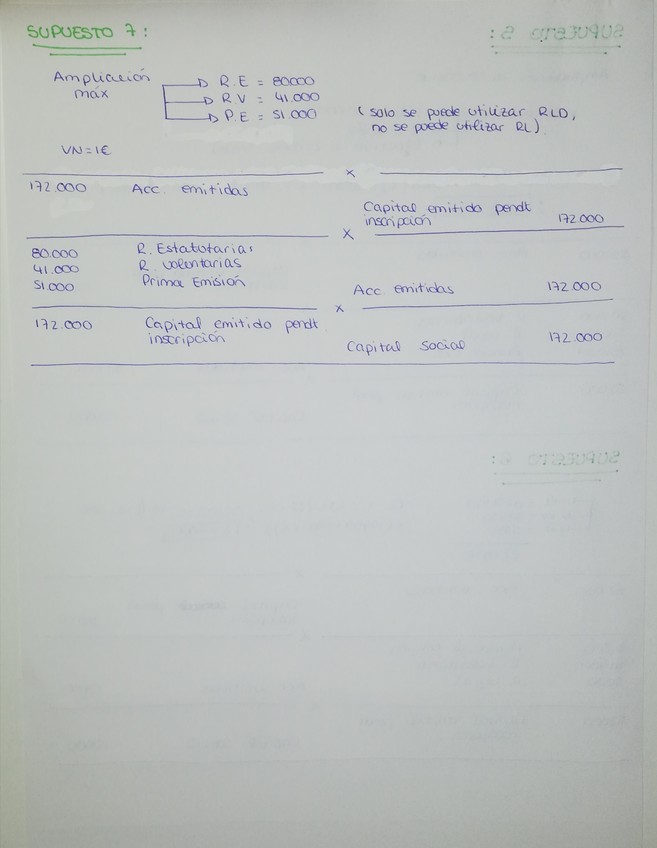 SUPUESTO 7:
Ampliación máx
R.E = 80.000
R.V = 41.000
P.E = 51.000
(solo se puede utilizar RLD,
no se puede utilizar RL).
VN=1€
x
172.000 Acc. emitidas
Capital emitido pendt
inscripción 172.000
x
80.000 R. Estatutarias
41.000 R. voluntarias
51.000 Prima Emisión
Acc emitidas 172.000
x
172.000 Capital emitido pendt
inscripción
Capital social 172.000